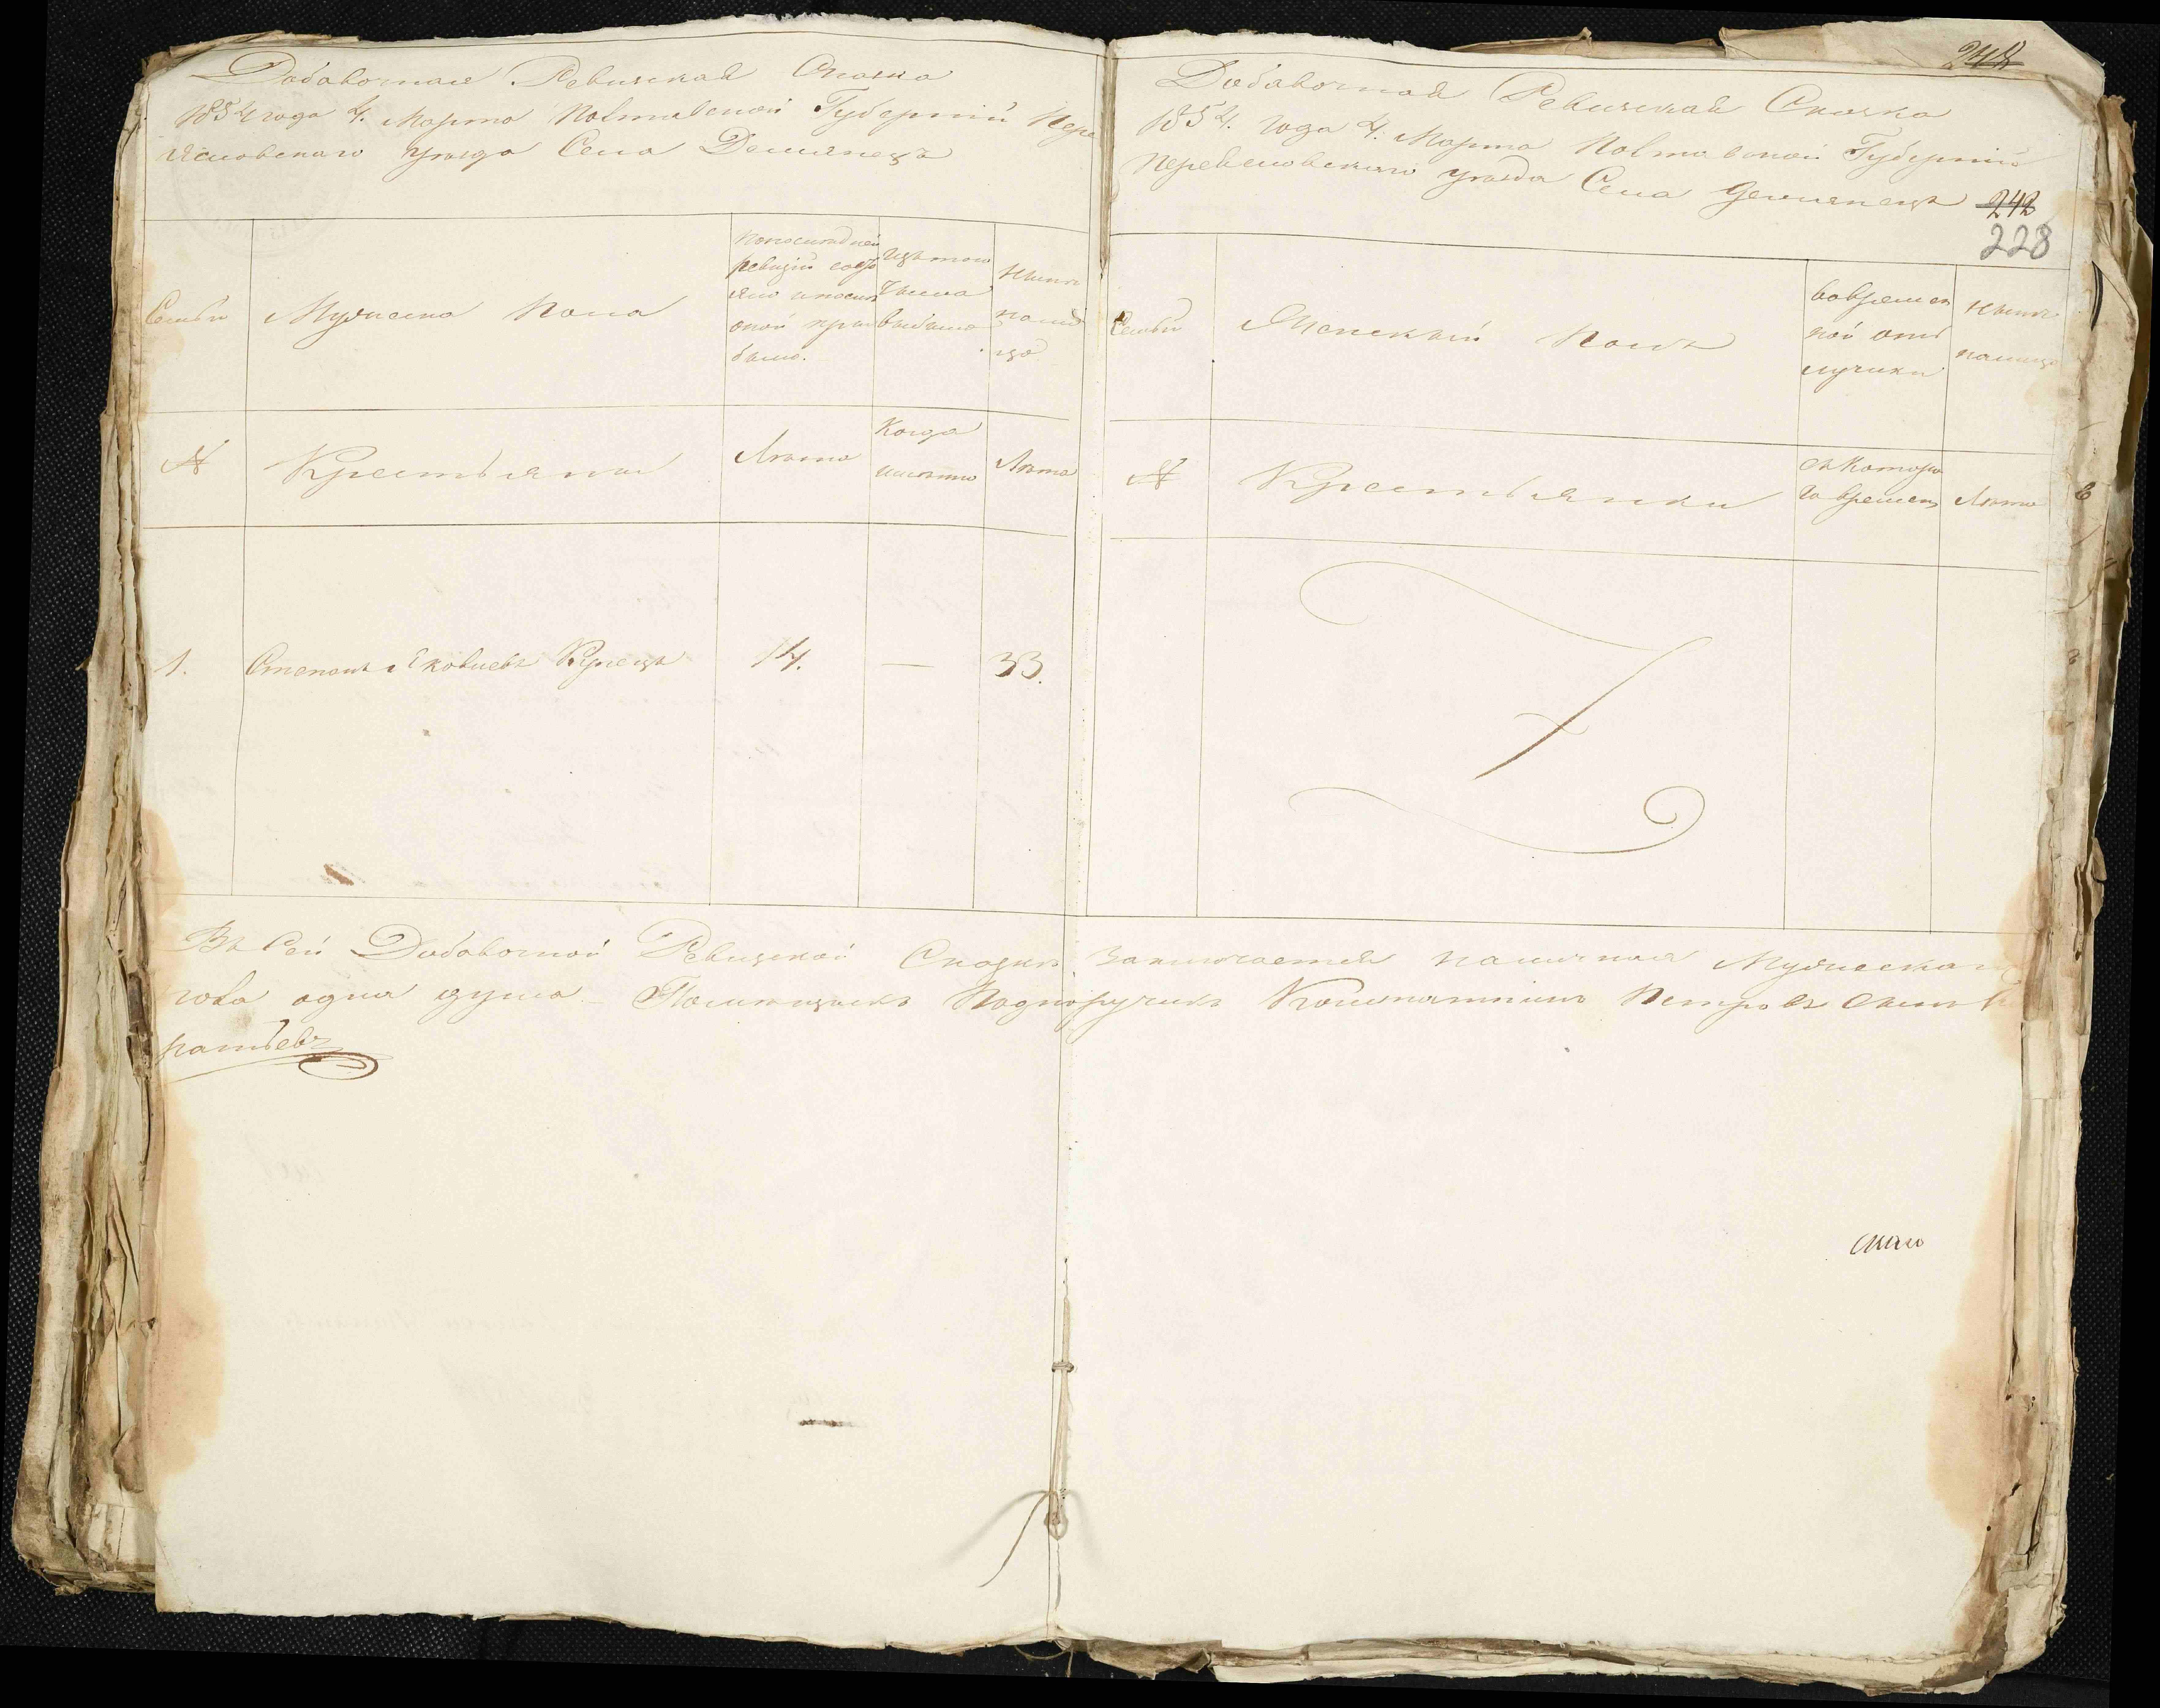 Добавочная Ревизская Сказка
1854 года 4. Марта Полтавской Губернии Пере
яславского уезда Села Демянецъ
Семьи
Мужеска Пола
По последней
ревизии состо
яло и после
оной при
было.
Изъ того
числа
выбыло
Ныне
нали
цо
№
Крестьяне
Лета
Когда
именно
Лета
1.
Степанъ Яковлевъ Купецъ
14.
—
33.
248
Добавочная Ревизская Сказка
1854. года 4. Марта Полтавской Губернии
Переяславского уезда Села Демянецъ
242
228
Семьи
Женский Полъ
Во времен
ной от
лучки
Ныне
налицо
№
Крестьянки
съ которо
го времени
Лета
Въ Сей Добавочной Ревизской Сказке Заключается наличная Мужеска
пола одна душа – Помещикъ Подпоручикъ Константинъ Петровъ Сынъ